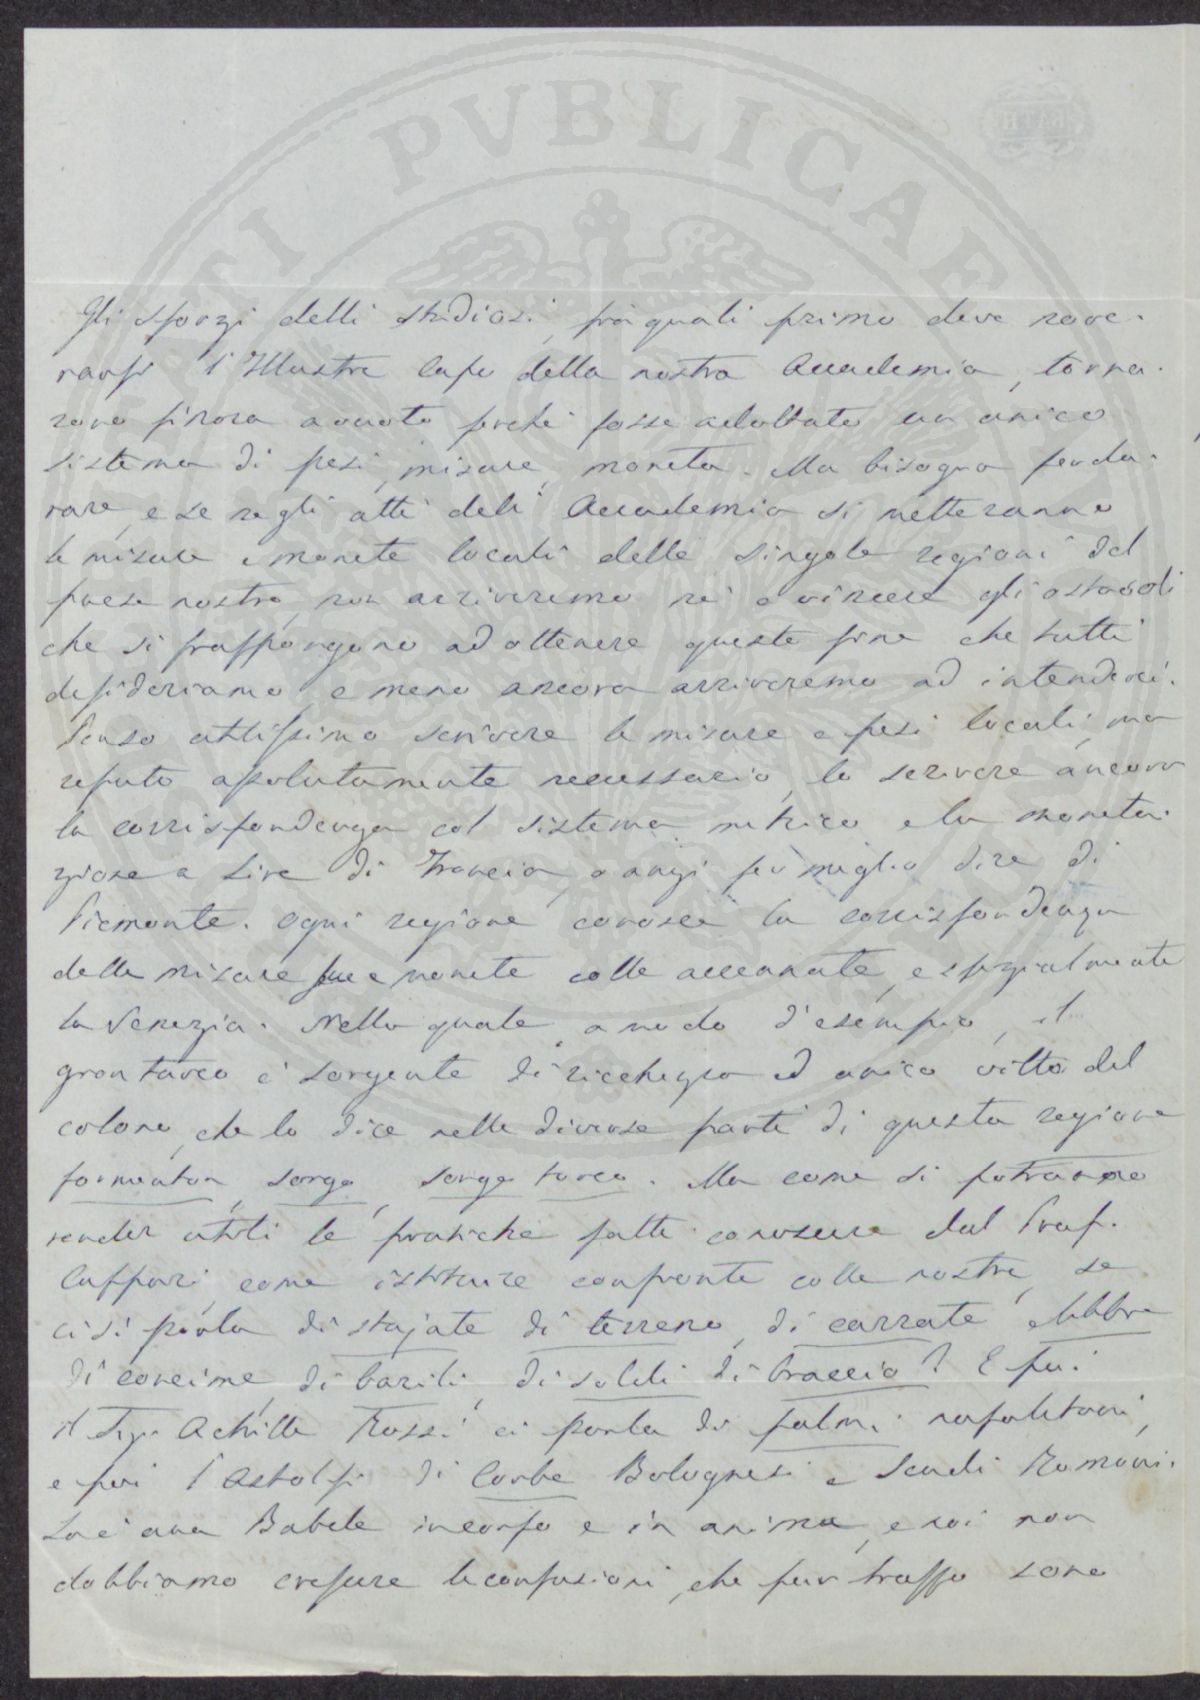 PVBLICAE
Gli sforzi delli studiosi, frà quali primo deve nove-
rarsi l'Illustre Capo della nostra Accademia, torna-
rono finora a vuoto perchè fosse addottato un unico
sistema di pesi, misure, moneta. Ma bisogna perdu-
rare, e se negli atti dell'Accademia si metteranno
le misure e monete locali delle singole regioni del
paese nostro, non arriveremo nè a vincere gli ostacoli
che si frappongono ad ottenere questo fine che tutti
desideriamo, e meno ancora arriveremo ad intenderci.
Penso utilissimo scrivere le misure e pesi locali, ma
reputo assolutamente necessario, lo scrivere ancora
la corrispondenza col sistema metrico e la moneta-
zione a Lire di Francia, o anzi per meglio dire di
Piemonte. Ogni regione conosce la corrispondenza
delle misure sue e monete colle accennate, e spezialmente
la Venezia. Nella quale a modo d'esempio, il
gran turco è sorgente di ricchezza ed unico vitto del
colono, che lo dice nelle diverse parti di questa regione
formenton, sorgo, sorgo turco. Ma come si potranno
render utili le pratiche fatte conoscere dal Prof.
Cuppari, come istituire confronto colle nostre, se
ci si parla di stajate di terreno, di carrate, e libbre
di concime, di barili, di soldi di braccio? E poi
il Sig. Achille Rossi ci parla di palmi napoletani,
e poi l'Astolfi di Corbe Bolognesi e Scudi Romani.
La è una Babele in corpo e in anima, e noi non
dobbiamo crescere le confusioni, che pur troppo sono